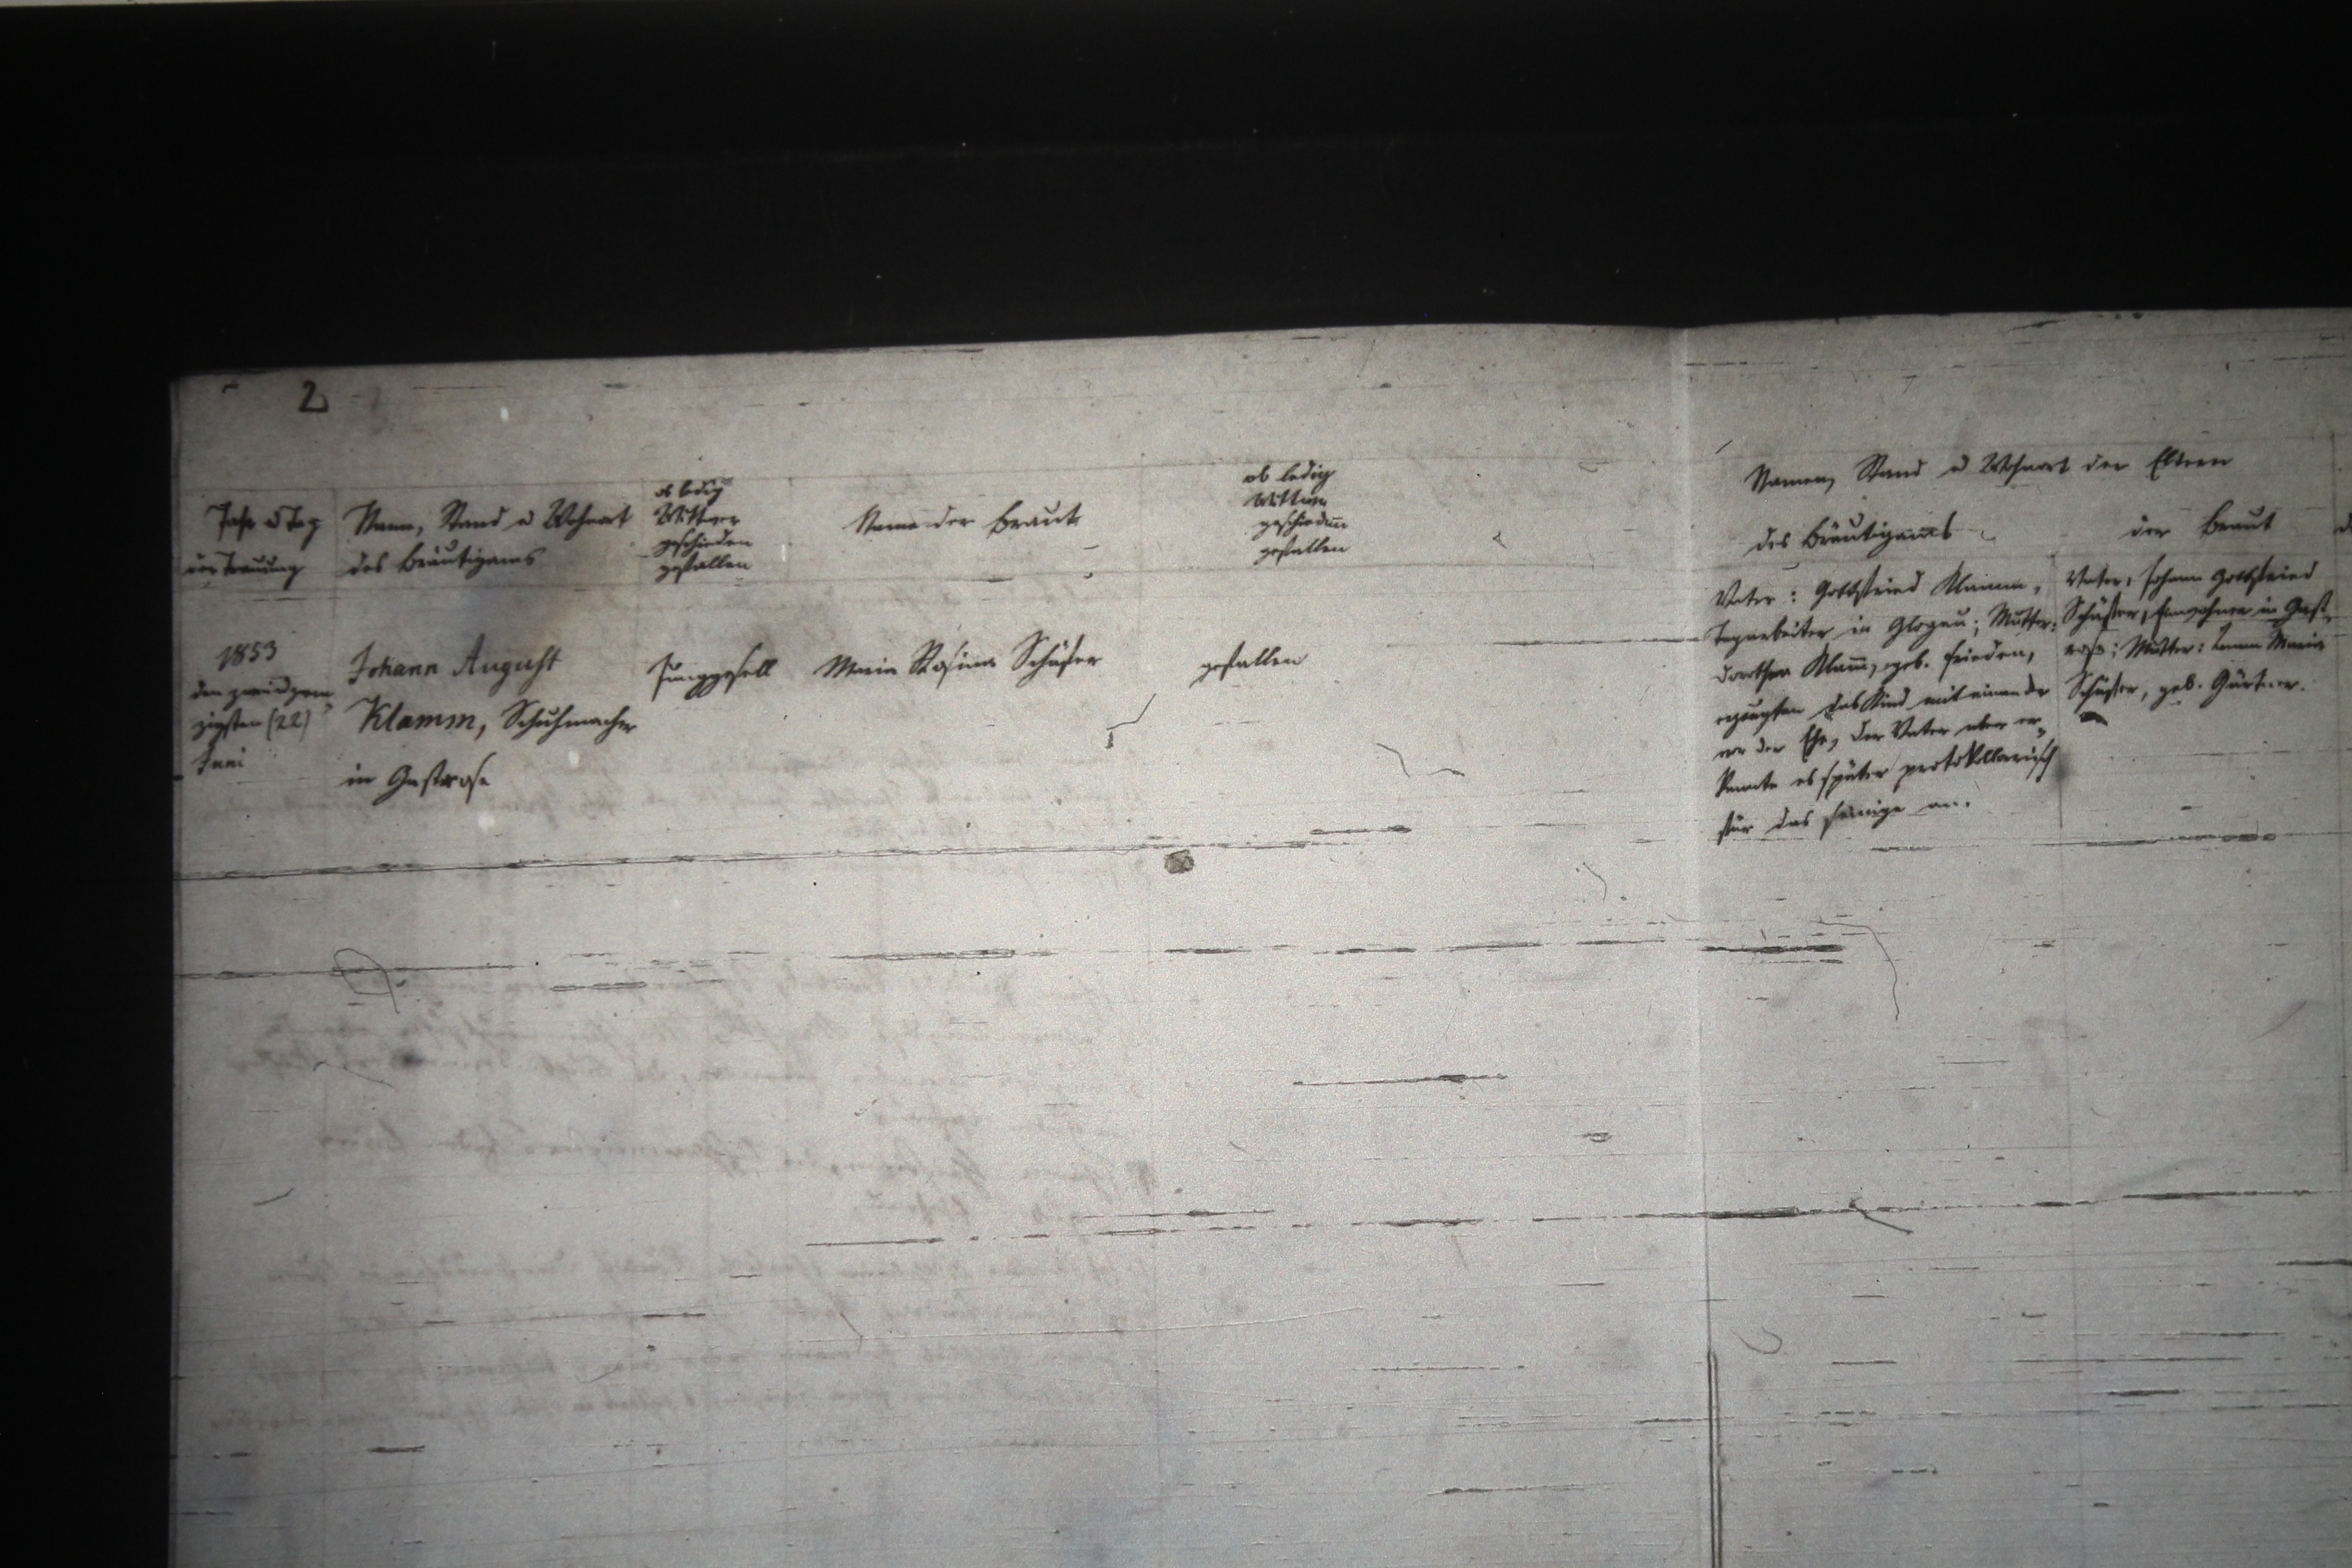 2
Jahr u Tag
der Trauung
Name, Stand u Wohnort
des Bräutigams
ob ledig
Wittwer
geschieden
gefallen
Name der Braut
ob ledig
Wittwe
geschieden
gefallen
Namen, Stand u Wohnort der Eltern
des Bräutigams
der Braut
1853
den zweiundzwan
zigsten (22)
Juni
Johann August
Klamm, Schuhmacher
in Gastrose
Junggesell
Maria Rosina Schäfer
gefallen
Vater: Gottfried Klamm,
Tagarbeiter in Glogau; Mutter:
Dorothea Klam̅, geb. Frieden,
erzeugten das Kind mit einander
vor der Ehe, der Vater aber er-
kannte es später protokollarisch
für das seinige an.
Vater, Johann Gottfried
Schäfer, Einwohner in Gast-
rose; Mutter: Maria
Schäfer, geb. Gärtner.